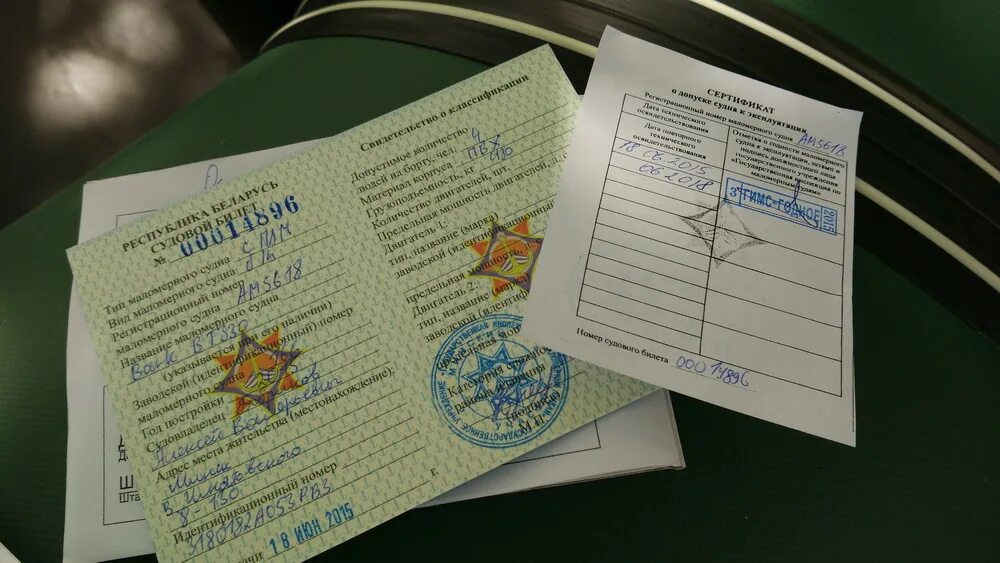 РЕСПУБЛИКА БЕЛАРУСЬ
СУДОВОЙ БИЛЕТ
№ 00014896
Тип маломерного судна с ПЛМ
Вид маломерного судна
Регистрационный номер
маломерного судна АМ5618
Название маломерного судна
Bark BT330
(указывается при его наличии)
Заводской (идентификационный) номер
маломерного судна
Год постройки
Судовладелец
Алексей
Адрес места жительства (местонахождение):
Минск
8 - 130
Идентификационный номер
3180182A053PB3
18 ИЮН 2015 г.
Свидетельство о классификации
Допустимое количество
людей на борту, чел:
Материал корпуса ПВХ
Грузоподъемность, кг
Количество двигателей, шт.
Предельная мощность двигателей, л. с.
Двигатель 1:
тип, название (марка)
заводской (идентификационный
предельная мощность, л.
Двигатель 2:
тип, название (марка)
заводской (идентифи
Категория
района плавания
(подпись)
М.П.
СЕРТИФИКАТ
о допуске судна к эксплуатации
Регистрационный номер маломерного судна АМ5618
Дата технического
освидетельствования
Дата повторного
технического
освидетельствования
Отметка о годности маломерного
судна к эксплуатации, штамп и
подпись должностного лица
государственного учреждения
«Государственная инспекция по
маломерным судам»
18.06.2015
06.2018
3 ГИМС-ГОДНОЕ 2015
Номер судового билета 00014896